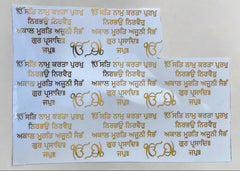 ੴ ਸਤਿ ਨਾਮੁ ਕਰਤਾ ਪੁਰਖੁ
ਨਿਰਭਉ ਨਿਰਵੈਰੁ
ਅਕਾਲ ਮੂਰਤਿ ਅਜੂਨੀ ਸੈਭੰ
ਗੁਰ ਪ੍ਰਸਾਦਿ॥
ਜਪੁ॥
ੴ ਸਤਿ ਨਾਮੁ ਕਰਤਾ ਪੁਰਖੁ
ਨਿਰਭਉ ਨਿਰਵੈਰੁ
ਅਕਾਲ ਮੂਰਤਿ ਅਜੂਨੀ ਸੈਭੰ
ਗੁਰ ਪ੍ਰਸਾਦਿ॥
ਜਪੁ॥
ੴ ੴ
ੴ ਸਤਿ ਨਾਮੁ ਕਰਤਾ ਪੁਰਖੁ
ਨਿਰਭਉ ਨਿਰਵੈਰੁ
ਅਕਾਲ ਮੂਰਤਿ ਅਜੂਨੀ ਸੈਭੰ
ਗੁਰ ਪ੍ਰਸਾਦਿ॥
ਜਪੁ॥
ੴ ਸਤਿ ਨਾਮੁ ਕਰਤਾ ਪੁਰਖੁ
ਨਿਰਭਉ ਨਿਰਵੈਰੁ
ਅਕਾਲ ਮੂਰਤਿ ਅਜੂਨੀ ਸੈਭੰ
ਗੁਰ ਪ੍ਰਸਾਦਿ॥
ਜਪੁ॥
ੴ ਸਤਿ ਨਾਮੁ ਕਰਤਾ ਪੁਰਖੁ
ਨਿਰਭਉ ਨਿਰਵੈਰੁ
ਅਕਾਲ ਮੂਰਤਿ ਅਜੂਨੀ ਸੈਭੰ
ਗੁਰ ਪ੍ਰਸਾਦਿ॥
ਜਪੁ॥
ੴ ੴ